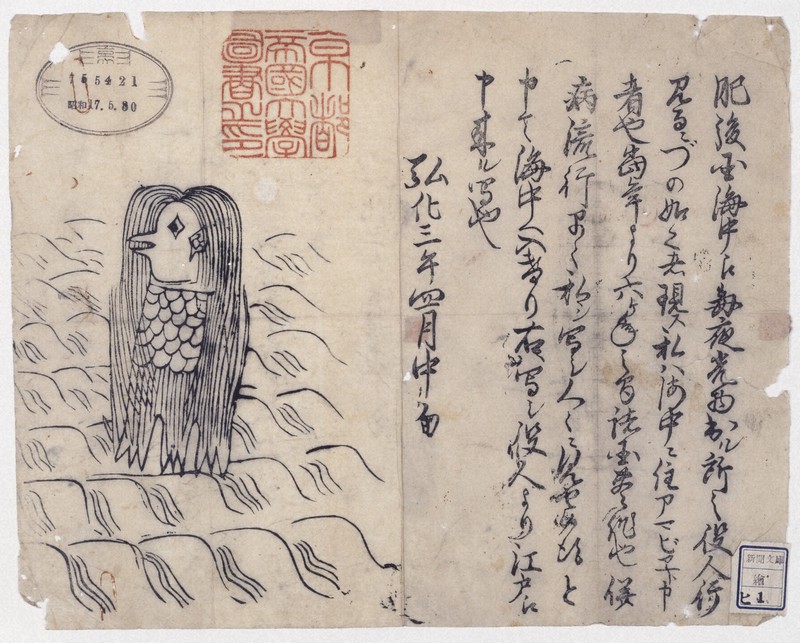 肥後国海中江毎夜光物出ル所之役人行
見るニづの如く者現ス私ハ海中ニ住アマビヱト申
者也當年より六ヶ年之間諸国豊作也併
病流行早々私ヲ写シ人々ニ見セ候得と
申て海中へ入けり右写シ役人より江戸江
申来ル写也
弘化三年四月中旬
京都
帝國大學
圖書之印
155421
昭和17.5.30
新聞文庫
繪
ヒ1